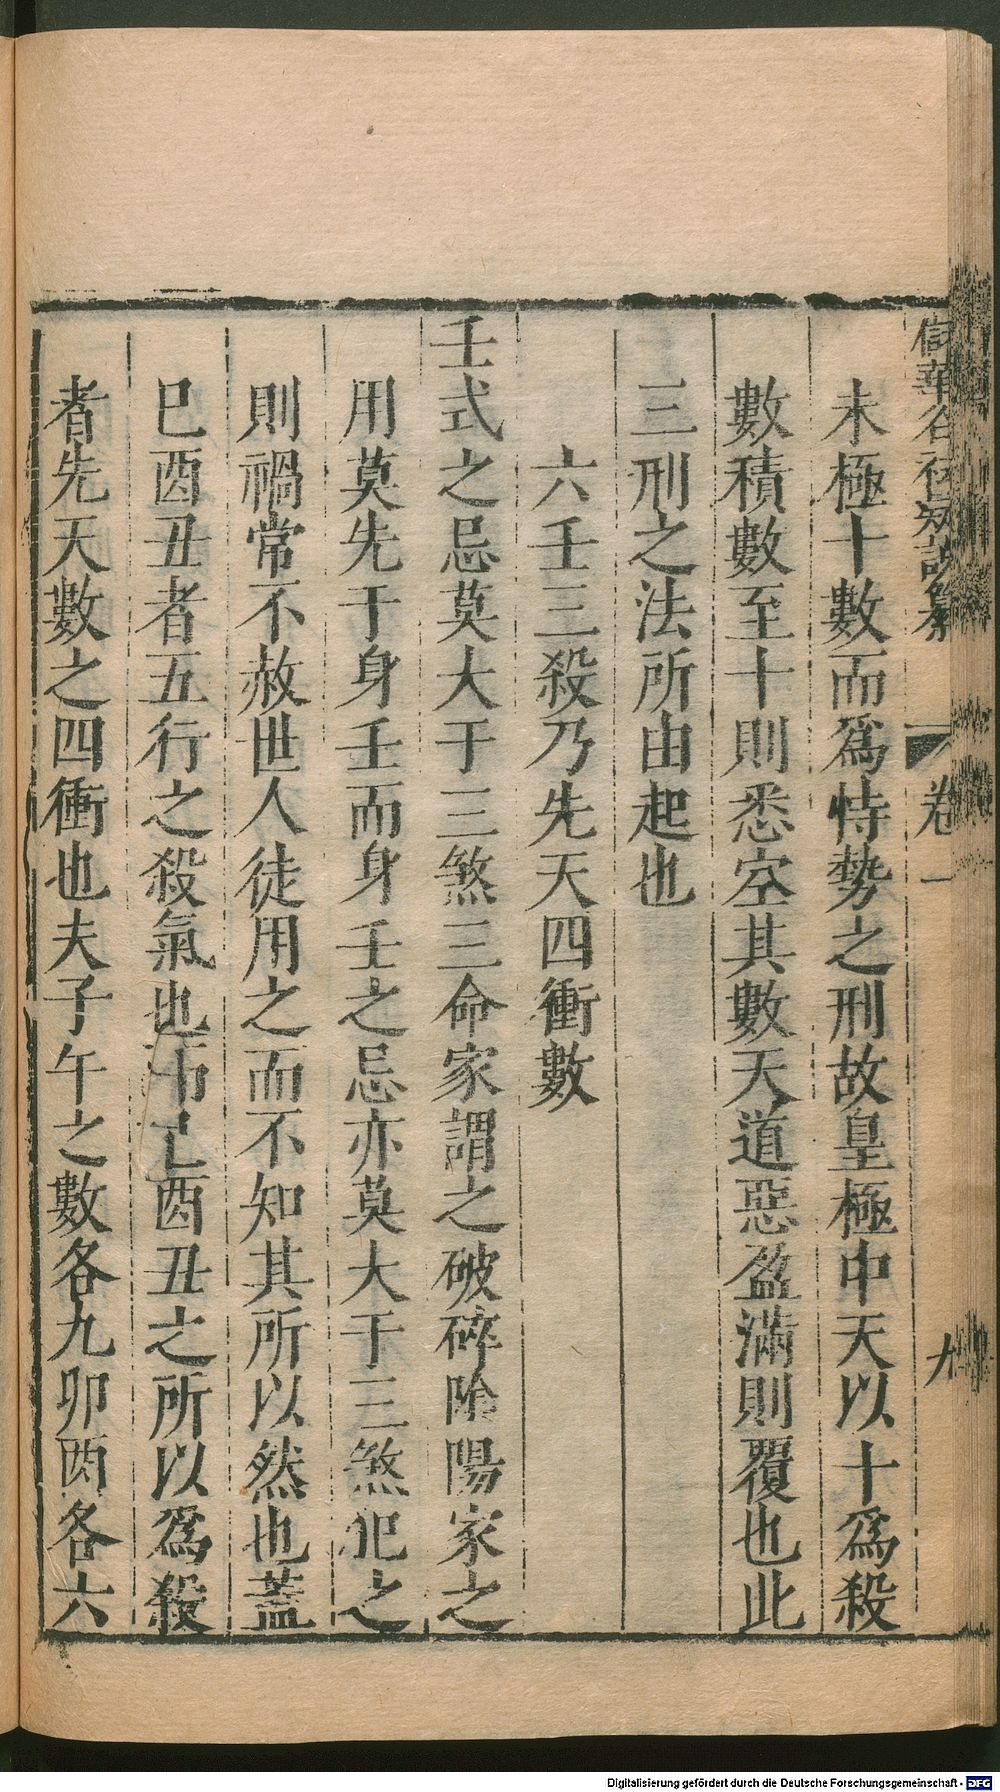 儲華谷袪疑說纂 卷一 九
未極十數而爲恃勢之刑故皇極中天以十爲殺
數積數至十則悉空其數天道惡盈滿則覆也此
三刑之法所由起也
六壬三殺乃先天四衝數
壬式之忌莫大于三煞三命家謂之破碎陰陽家之
用莫先于身壬而身壬之忌亦莫大于三煞犯之
則禍常不赦世人徒用之而不知其所以然也蓋
巳酉丑者五行之殺氣也而巳酉丑之所以爲殺
者先天數之四衝也夫子午之數各九卯酉各六
Digitalisierung gefördert durch die Deutsche Forschungsgemeinschaft - DFG